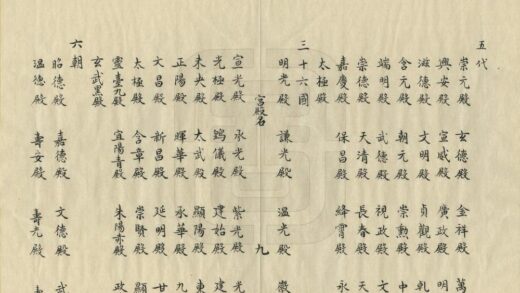 五代
崇元殿 玄德殿 金祥殿 萬
興安殿 宣威殿 廣政殿 明
滋德殿 文明殿 貞觀殿 乾
含元殿 朝元殿 崇勳殿 中
端明殿 武德殿 視政殿 文
崇德殿 天清殿 長春殿 天
嘉慶殿 保昌殿 絳霄殿 永
太極殿
三十六國
明光殿 謙光殿 溫光殿 徽
宮殿名 九
宣光殿 永光殿 紫光殿 光
光極殿 儀殿 建始殿 建
未央殿 大武殿 顯陽殿 東
正陽殿 暉華殿 承華殿 九
文昌殿 新昌殿 延明殿 甘
太極殿 含章殿 崇賢殿 顯
靈臺九殿 宜陽青殿 朱陽赤殿 政
玄武黑殿
六朝
昭德殿 嘉德殿 文德殿 武
溫德殿 壽安殿 壽光殿